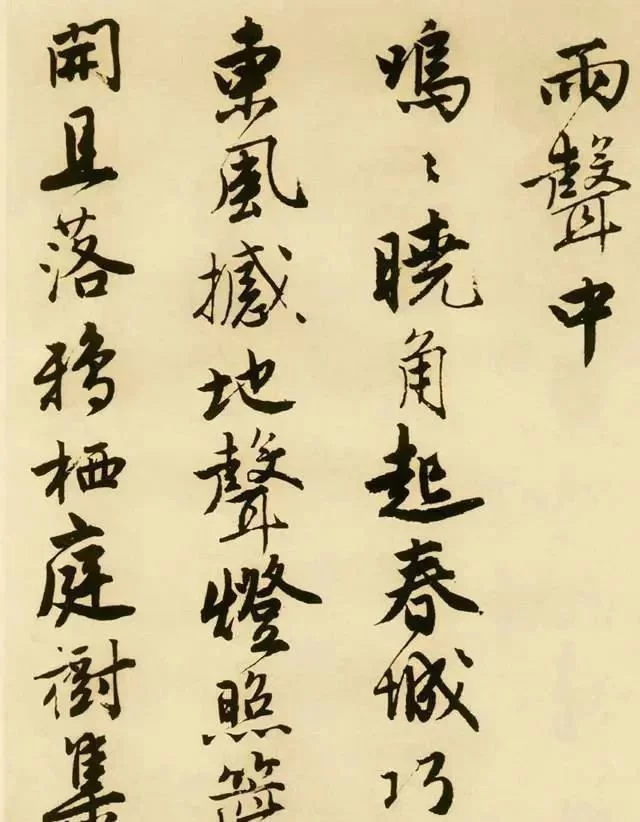 雨聲中
嗚〻曉角起春城巧
東風撼地聲燈照
開且落鴉栖庭樹集